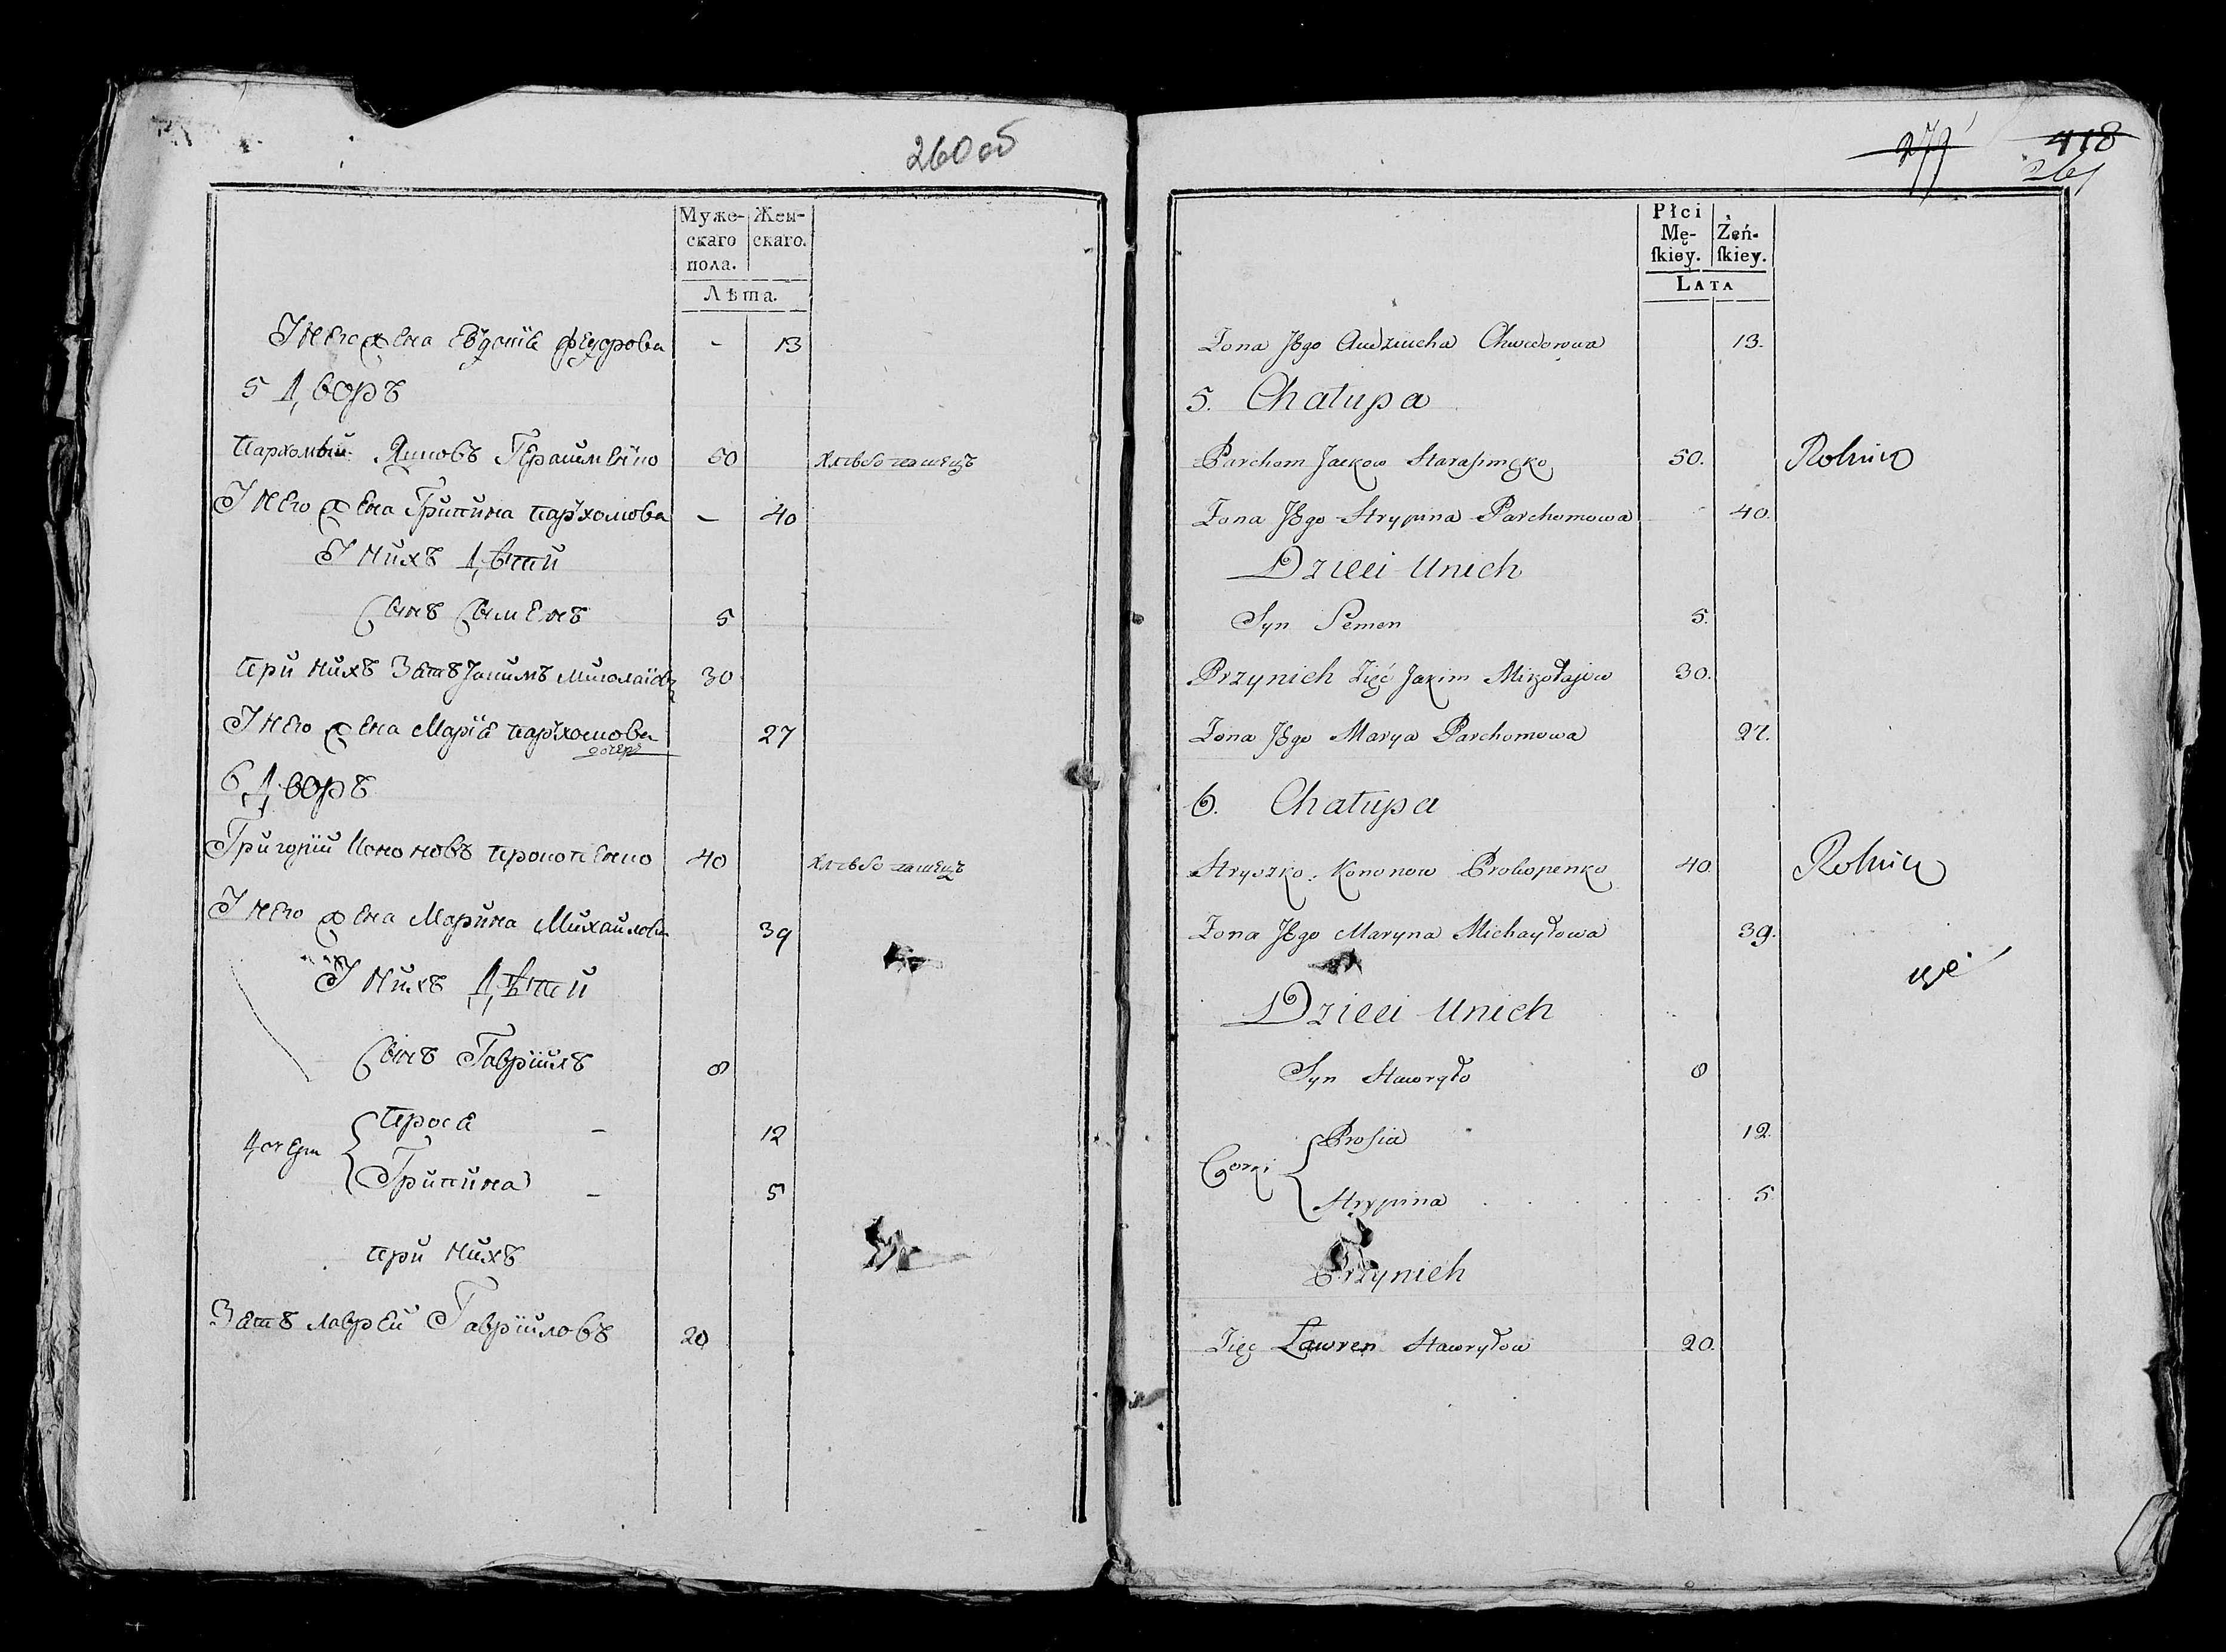 260 об
Муже-
скаго
пола.
Жен-
скаго.
Лѣта.
У него жена Евдокіѣ Федорова - 13
5 Дворъ
Пархомъ Яцковъ Герасименко 50 хлѣбопашецъ
У него жена Грипина Пархомова - 40
У нихъ дѣтй
Сынъ СымЕнъ 5
При нихъ Зять Якимъ Миколаїовъ 30
У него жена Маріѣ Пархомова 27
дочерь
6 Дворъ
Григорій Кононовъ Прокопенко 40 хлѣбопашецъ
У него жена Марина Михайлова 39
У нихъ дѣтй
Сынъ Гавріилъ 8
Дочери
Просѣ - 12
Грипина - 5
При нихъ
Зѣть Лаврей Гавріиловъ 20
279 418
261
Płci
Mę-
ſkiey.
Żeń-
ſkiey.
LATA
Zona Jego Audziucha Chwedorowa 13.
5. Chałupa
Parchom Jackow Harasimęko 50. Rolnik
Zona Jego Hrypina Parchomowa 40.
Dzieci Unich
Syn Semen 5.
Przynich Zięć Jakim Mikołajiw 30.
Zona Jego Marya Parchomowa 27.
6. Chałupa
Hryszko Kononow Prokopenko 40. Rolnik
Zona Jego Maryna Michayłowa 39.
Dzieci Unich
Syn Hawryło 8
Corki
Prosia 12.
Hrypina 5
Przynich
Zięc Lawren Hawryłow 20.